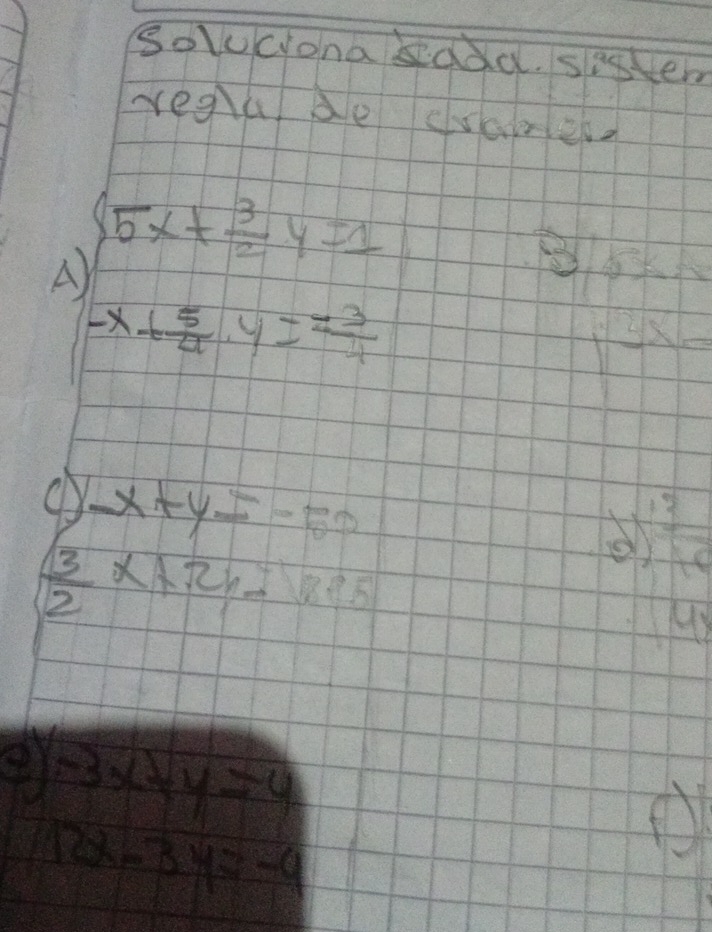 Soluciona cada sistem
regla de cramer
A) 5x + 3/2 y = 1
-x + 5/4 y = -3/4
B)
3x -
C) -x + y = -50
3/2 x + 2y =
d)
e) -3x + y = 4
12x - 3y = -9
f)